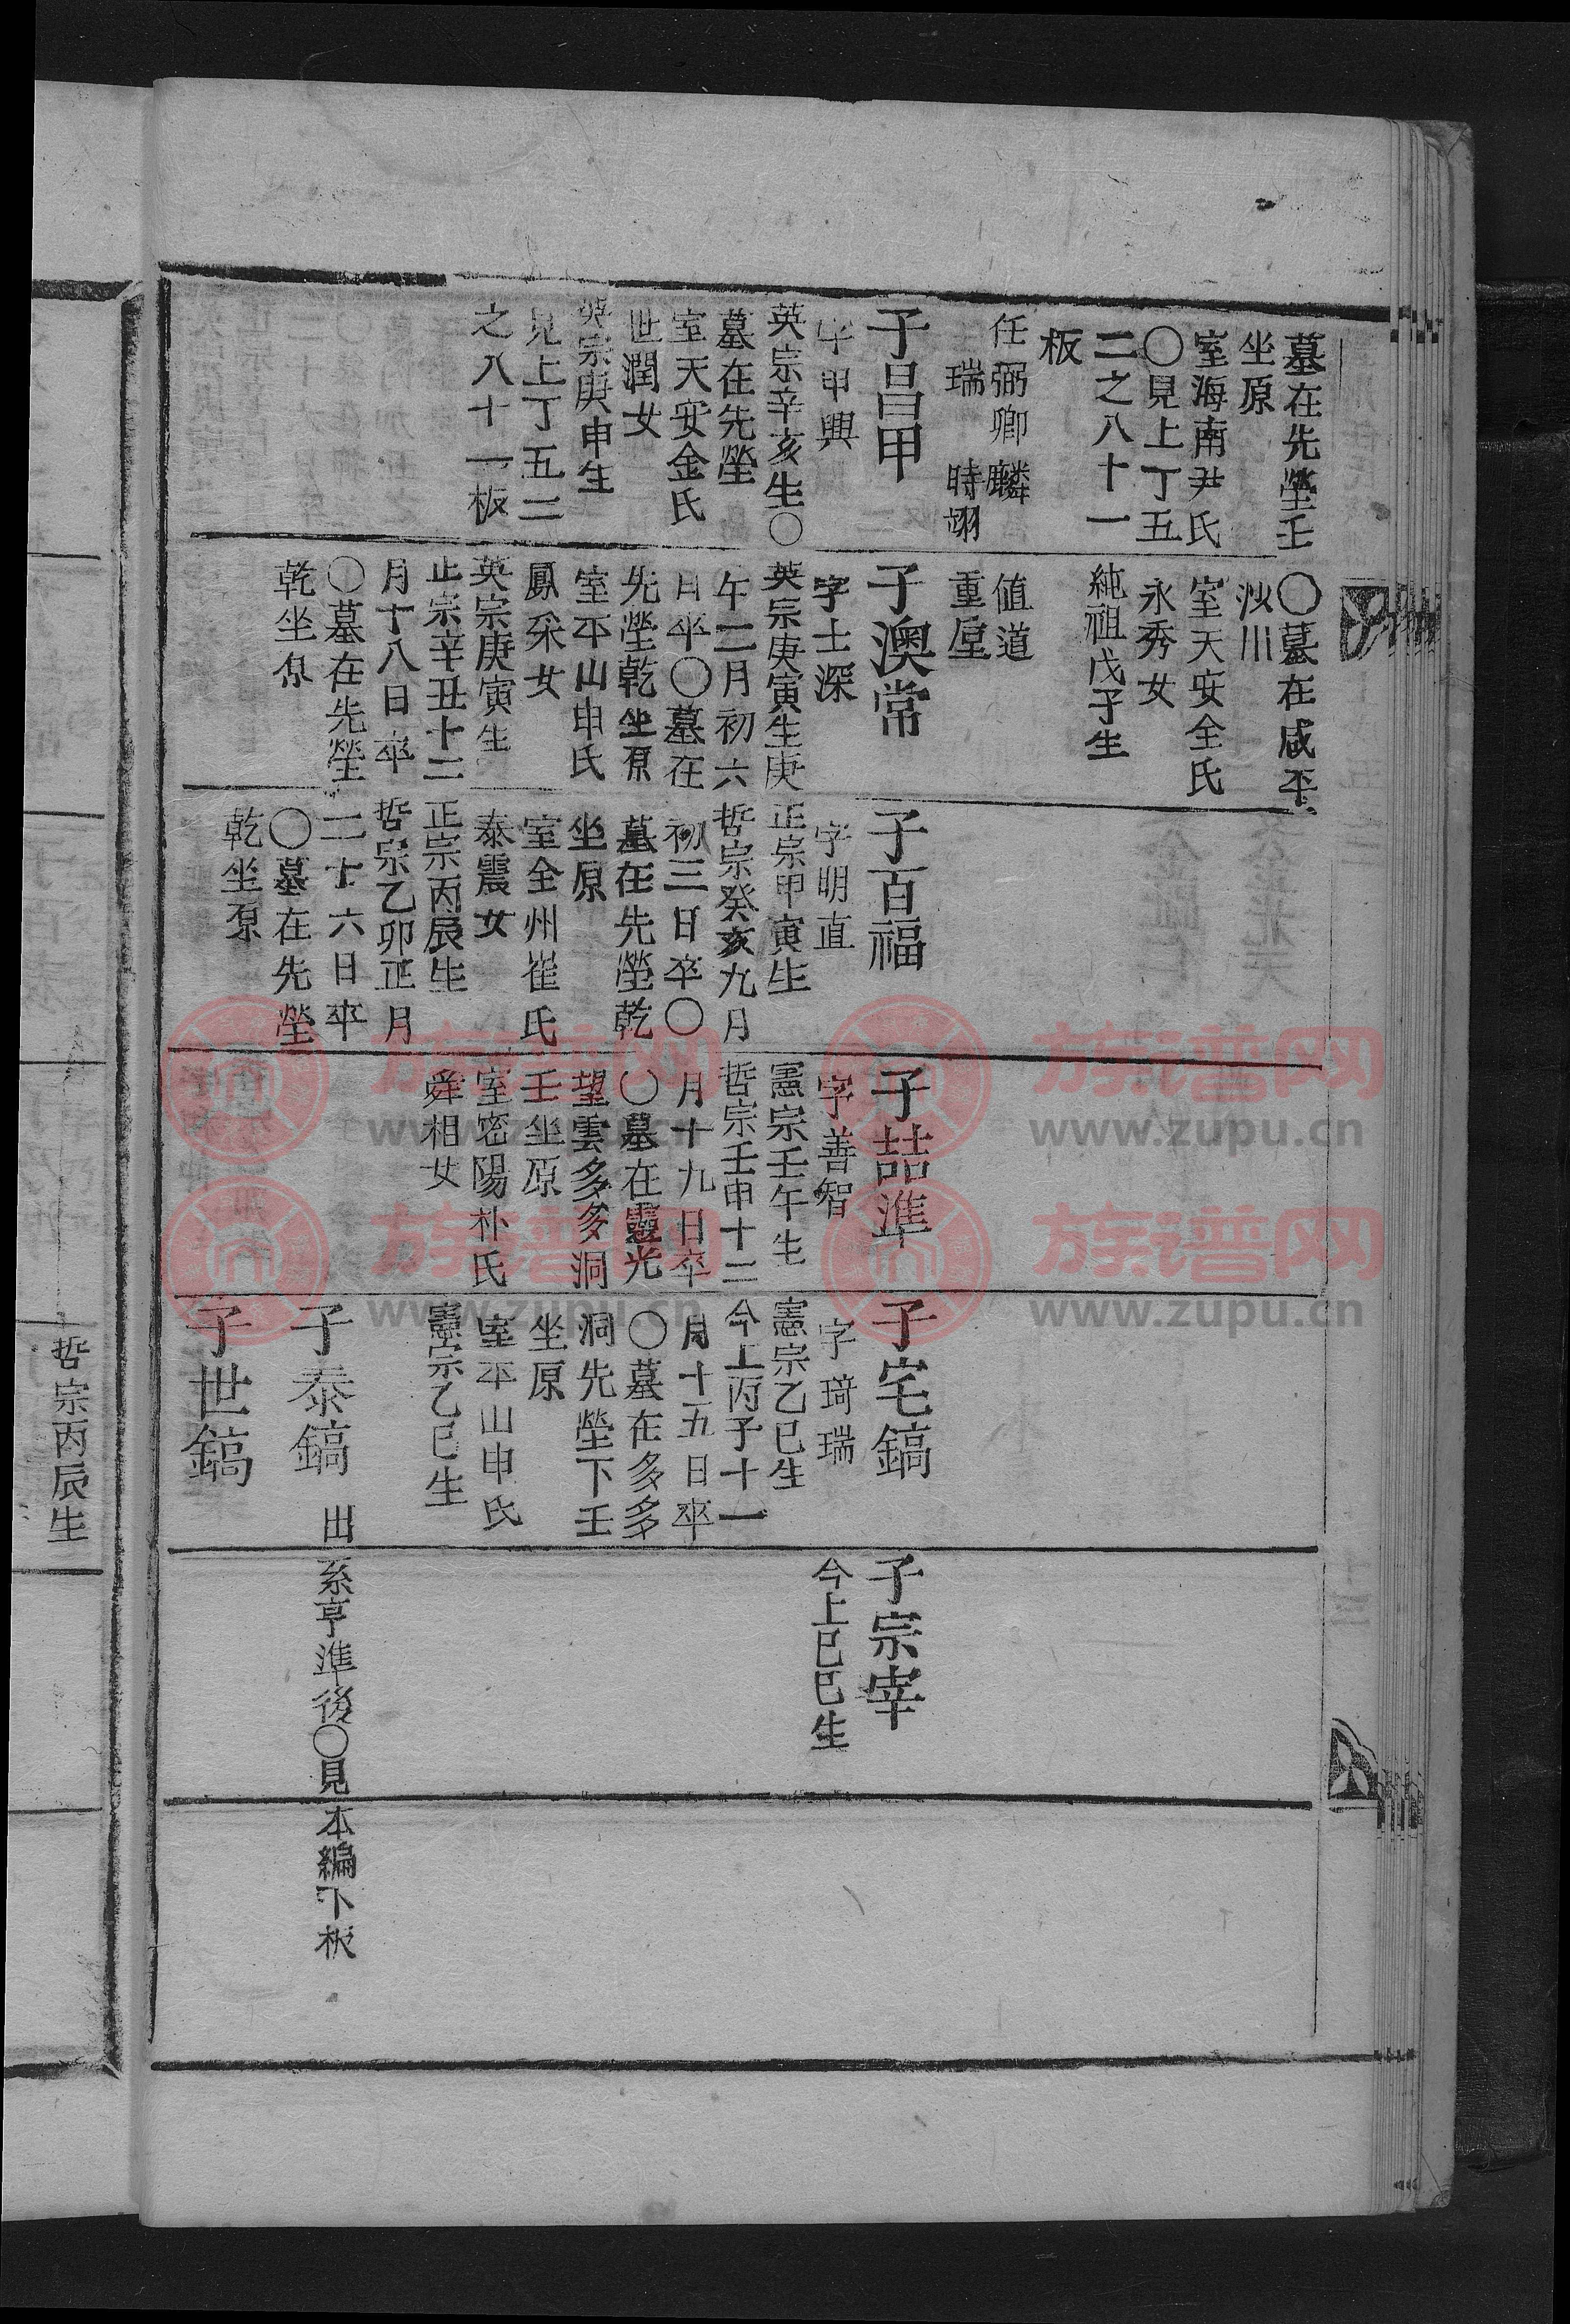 墓在先塋壬
坐原
室海南尹氏
〇見上丁五
二之八十一
板
任弼卿 麟
瑞 時翊
子昌甲
字甲興
英宗辛亥生〇
墓在先塋
室天安金氏
世潤女
英宗庚申生
見上丁五二
之八十一板
〇墓在咸平
沙川
室天安全氏
永秀女
純祖戊子生
值道
重垕
子澳常
字士深
英宗庚寅生庚
午二月初六
日卒〇墓在
先塋乾坐原
室平山申氏
鳳采女
英宗庚寅生
正宗辛丑十二
月十八日卒
〇墓在先塋
乾坐原
子百福
字明直
正宗甲寅生
哲宗癸亥九月
初三日卒〇
墓在先塋乾
坐原
室全州崔氏
泰震女
正宗丙辰生
哲宗乙卯正月
二十六日卒
〇墓在先塋
乾坐原
子喆準
字善智
憲宗壬午生
哲宗壬申十二
月十九日卒
〇墓在靈光
望雲多多洞
壬坐原
室密陽朴氏
舜相女
子宅鎬
字琦瑞
憲宗乙巳生
今上丙子十一
月十五日卒
〇墓在多多
洞先塋下壬
坐原
室平山申氏
憲宗乙巳生
子泰鎬 出系亨準後〇見本編下板
子世鎬
子宗宰
今上己巳生
哲宗丙辰生
族谱网
www.zupu.cn
族谱网
www.zupu.cn
族谱网
www.zupu.cn
族谱网
www.zupu.cn